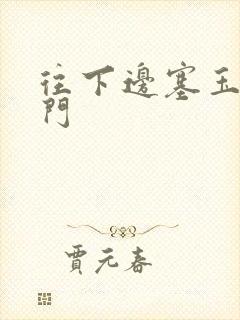 往下邊塞玉
門
賈元春